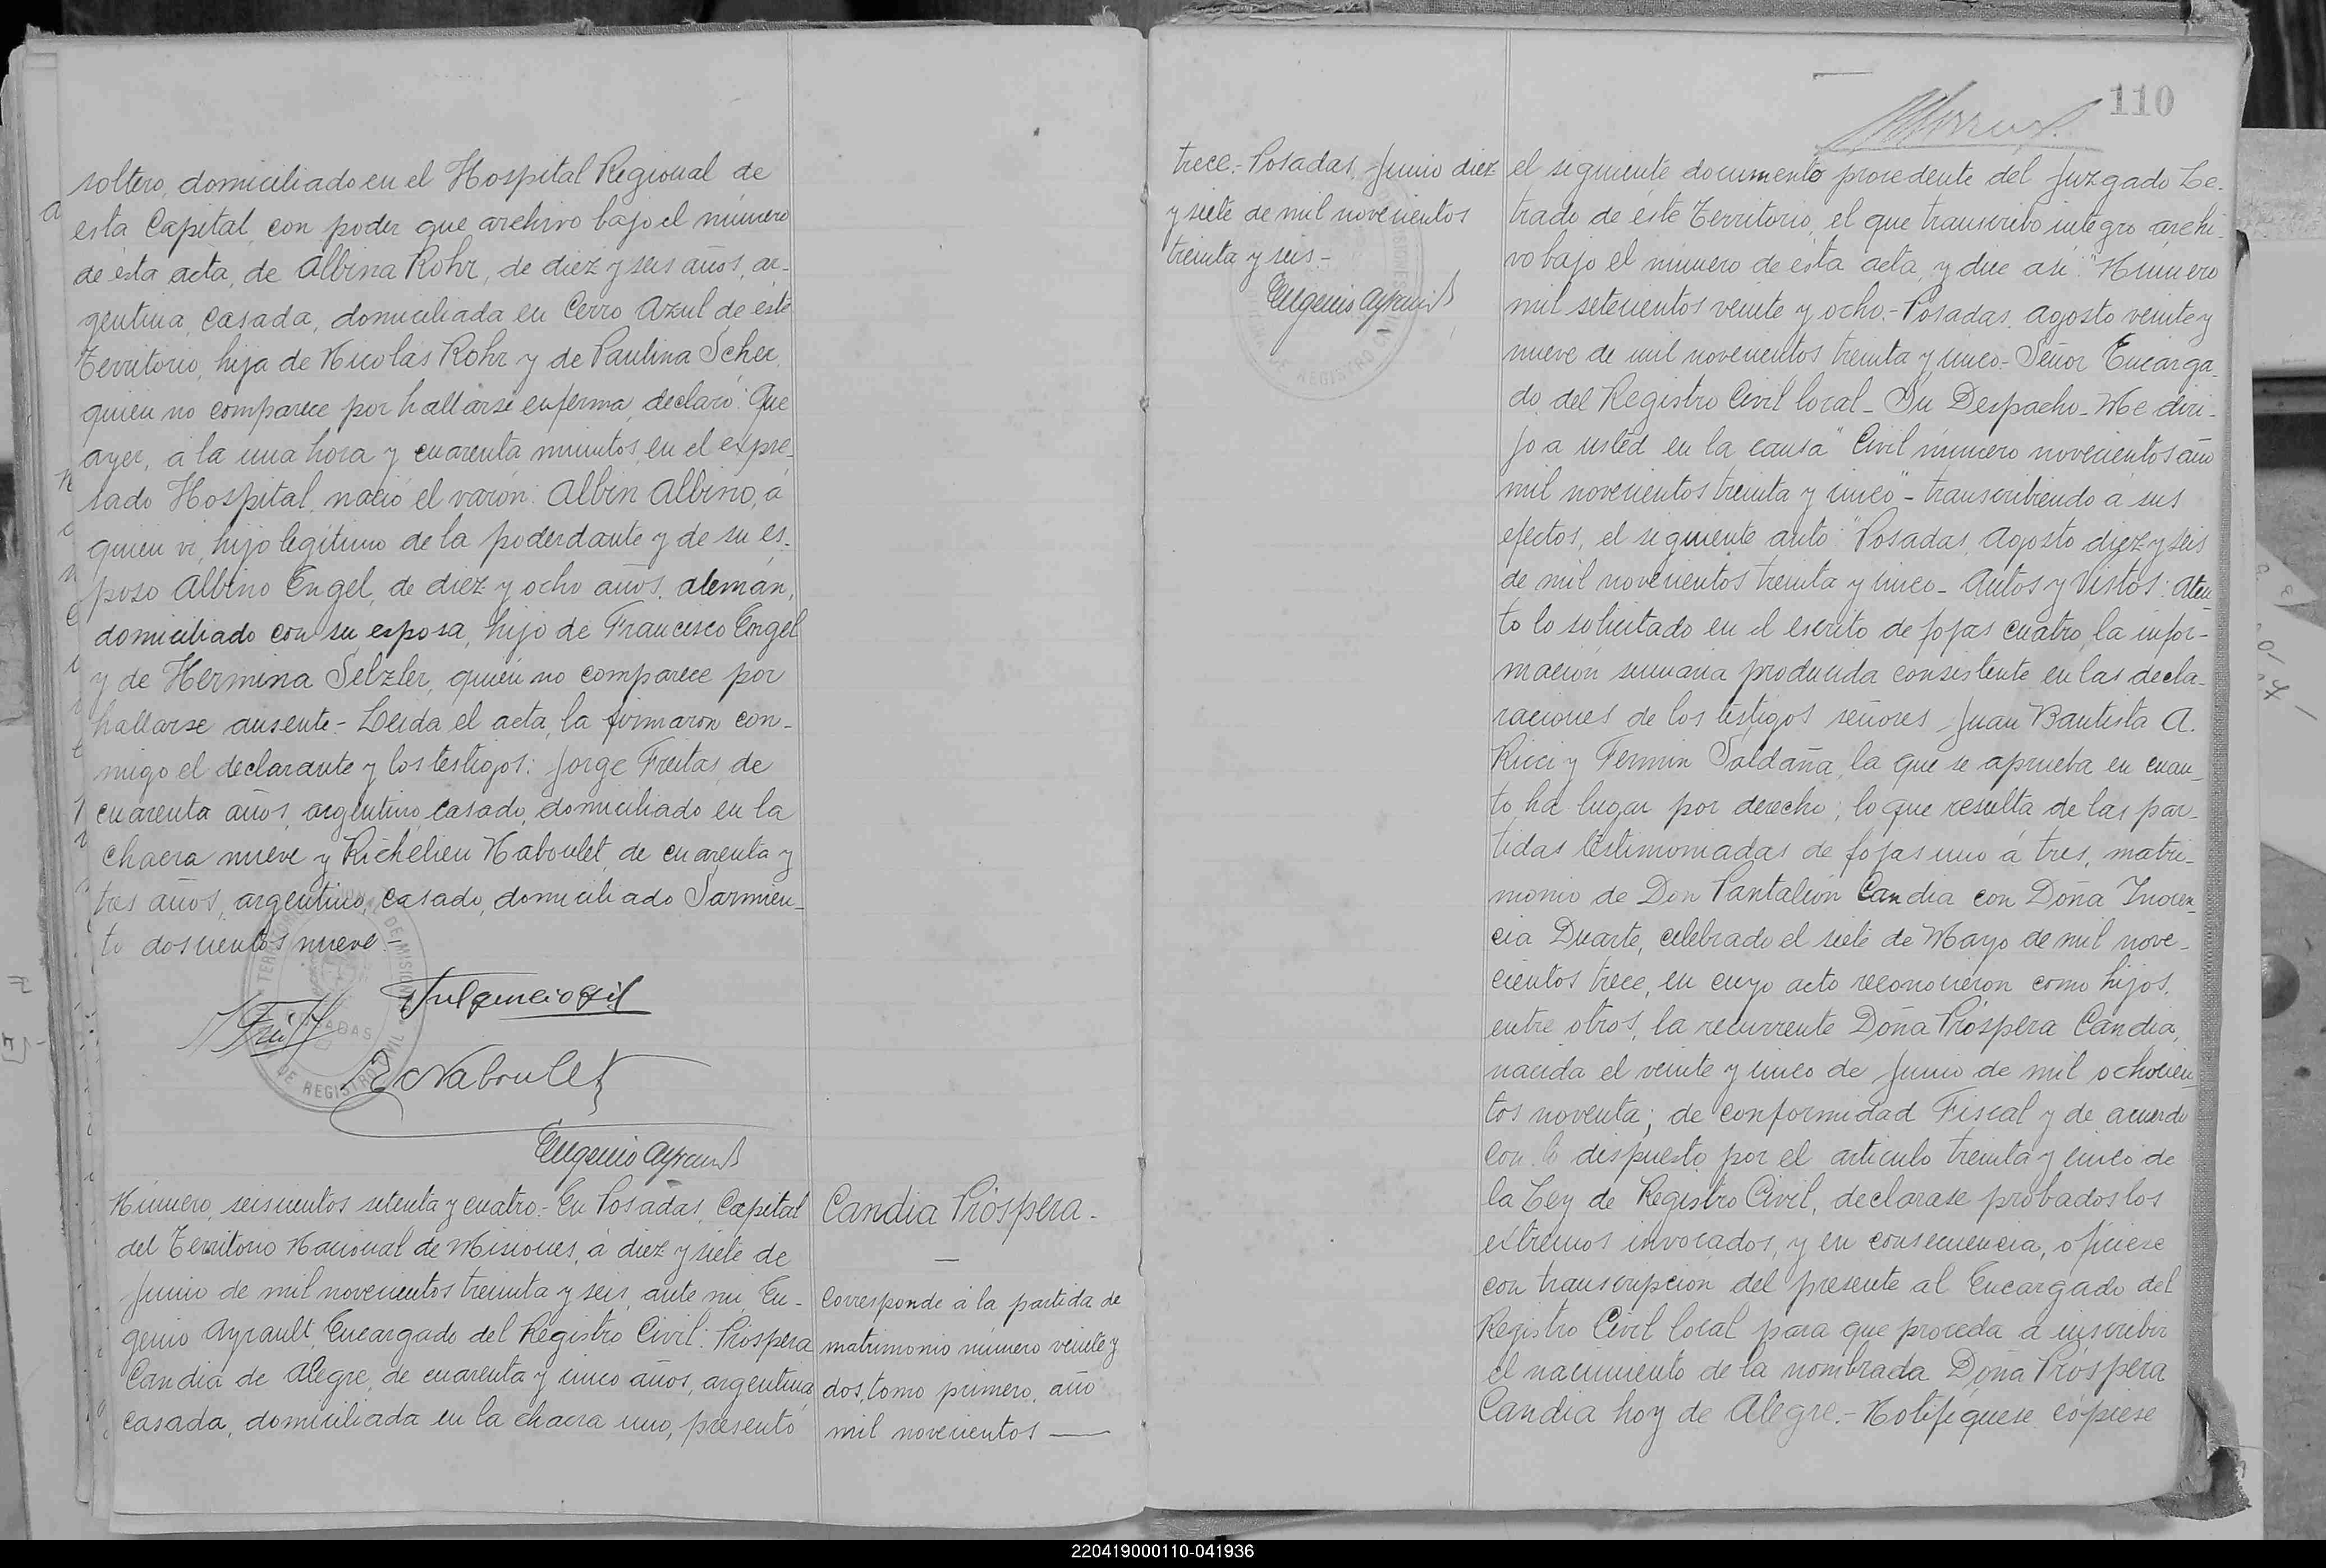 soltero, domiciliado en el Hospital Regional de
esta Capital, con poder que archivo bajo el número
de ésta acta, de Albina Rohr, de diez y seis años, ar-
gentina, casada, domiciliada en Cerro Azul de éste
Territorio, hija de Nicolás Rohr y de Paulina Scher,
quien no comparece por hallarse enferma, declaró: Que
ayer, á la una hora y cuarenta minutos, en el expre-
sado Hospital, nació el varón: Albin Albino, á
quien vi, hijo legítimo de la poderdante y de su es-
poso Albino Engel, de diez y ocho años, alemán,
domiciliado con su esposa, hijo de Francisco Engel
y de Hermina Selzler, quien no comparece por
hallarse ausente.- Leida el acta, la firmaron con-
migo el declarante y los testigos: Jorge Freitas, de
cuarenta años, argentino, casado, domiciliado en la
chacra nueve y Richelieu Naboulet, de cuarenta y
tres años, argentino, casado, domiciliado Sarmien-
to doscientos nueve.-
Fulgencio Gil
J Freit
R Naboulet
Eugenio Ayrault
Número, seiscientos setenta y cuatro.- En Posadas, Capital
del Territorio Nacional de Misiones, á diez y siete de
Junio de mil novecientos treinta y seis, ante mi, Eu-
genio Ayrault, Encargado del Registro Civil: Próspera
Candia de Alegre, de cuarenta y cinco años, argentina,
casada, domiciliada en la chacra uno, presentó
Candia Próspera.-
Corresponde á la partida de
matrimonio número veinte y
dos, tomo primero, año
mil novecientos
trece.- Posadas, Junio diez
y siete de mil novecientos
treinta y seis.-
Eugenio Ayrault
110
el siguiente documento procedente del Juzgado Le-
trado de éste Territorio, el que transcribo íntegro archi-
vo bajo el número de ésta acta, y dice así: "Número
mil setecientos veinte y ocho.- Posadas, Agosto veinte y
nueve de mil novecientos treinta y cinco.- Señor Encarga-
do del Registro Civil local - Su Despacho - Me diri-
jo a usted en la causa "Civil número novecientos año
mil novecientos treinta y cinco" - transcribiendo á sus
efectos, el siguiente auto: "Posadas, Agosto diez y seis
de mil novecientos treinta y cinco - Autos y Vistos: Aten-
to lo solicitado en el escrito de fojas cuatro, la infor-
mación sumaria producida consistente en las decla-
raciones de los testigos señores Juan Bautista A.
Ricci y Fermin Saldaña, la que se aprueba en cuan-
to ha lugar por derecho; lo que resulta de las par-
tidas testimoniadas de fojas uno á tres, matri-
monio de Don Pantaleón Candia con Doña Inocen-
cia Duarte, celebrado el siete de Mayo de mil nove-
cientos trece, en cuyo acto reconocieron como hijos,
entre otros, la recurrente Doña Próspera Candia,
nacida el veinte y cinco de Junio de mil ochocien-
tos noventa; de conformidad Fiscal y de acuerdo
con lo dispuesto por el artículo treinta y cinco de
la Ley de Registro Civil, declarase probados los
extremos invocados, y en consecuencia, ofíciese
con transcripción del presente al Encargado del
Registro Civil local para que proceda á inscribir
el nacimiento de la nombrada Doña Próspera
Candia hoy de Alegre.- Notifíquese, cópiese
220419000110-041936